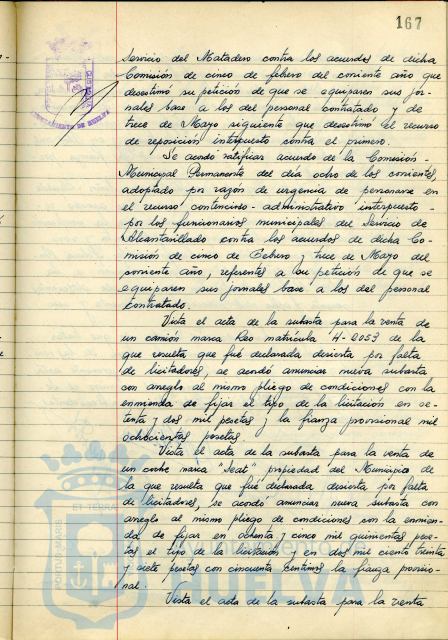 167
AYUNTAMIENTO DE HUELVA
Servicio del Matadero contra los acuerdos de dicha
Comisión de cinco de febrero del corriente año que
desestimó su petición de que se equiparen sus jor-
nales base a los del personal contratado y de
trece de Mayo siguiente que desestimó el recurso
de reposición interpuesto contra el primero.
Se acordó ratificar acuerdo de la Comisión
Municipal Permanente del día ocho de los corrientes,
adoptado por razón de urgencia de personarse en
el recurso contencioso-administrativo interpuesto
por los funcionarios municipales del Servicio de
Alcantarillado contra los acuerdos de dicha Co-
misión de cinco de Febrero y trece de Mayo del
corriente año, referentes a su petición de que se
equiparen sus jornales base a los del personal
contratado.
Vista el acta de la subasta para la venta de
un camión marca Reo matrícula H-2053 de la
que resulta que fué declarada desierta por falta
de licitadores, se acordó anunciar nueva subasta
con arreglo al mismo pliego de condiciones con la
enmienda de fijar el tipo de la licitación en se-
tenta y dos mil pesetas y la fianza provisional mil
ochocientas pesetas.
Vista el acta de la subasta para la venta de
un coche marca "Seat" propiedad del Municipio de
la que resulta que fué declarada desierta por falta
de licitadores, se acordó anunciar nueva subasta con
arreglo al mismo pliego de condiciones con la enmien-
da de fijar en ochenta y cinco mil quinientas pese-
tas el tipo de la licitación y en dos mil ciento treinta
y siete pesetas con cincuenta céntimos la fianza provisio-
nal.
Vista el acta de la subasta para la venta
PORTUS MARIS
ET TERRAE
HUELVA